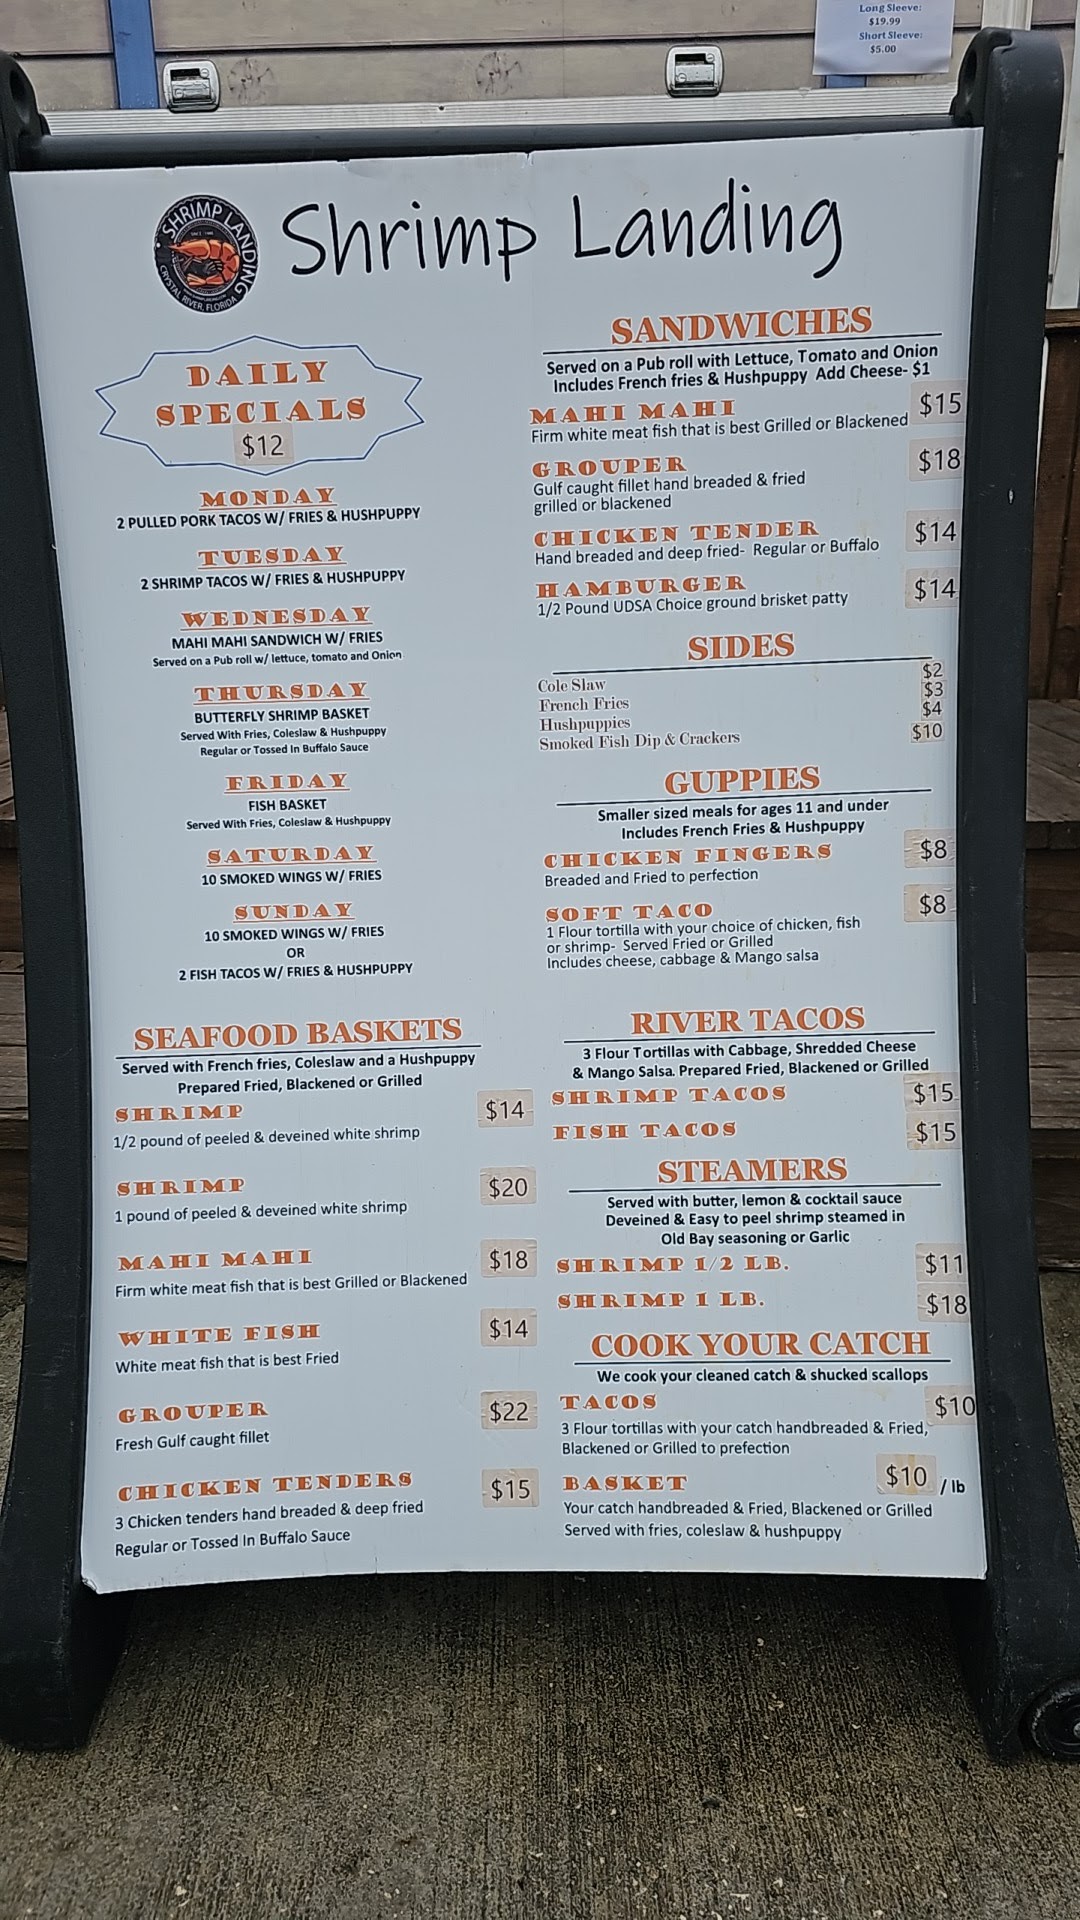 Long Sleeve:
$19.99
Short Sleeve:
$5.00
SHRIMP LANDING
CRYSTAL RIVER, FLORIDA
Shrimp Landing
DAILY
SPECIALS
$12
MONDAY
2 PULLED PORK TACOS W/ FRIES & HUSHPUPPY
TUESDAY
2 SHRIMP TACOS W/ FRIES & HUSHPUPPY
WEDNESDAY
MAHI MAHI SANDWICH W/ FRIES
Served on a Pub roll w/ lettuce, tomato and Onion
THURSDAY
BUTTERFLY SHRIMP BASKET
Served With Fries, Coleslaw & Hushpuppy
Regular or Tossed In Buffalo Sauce
FRIDAY
FISH BASKET
Served With Fries, Coleslaw & Hushpuppy
SATURDAY
10 SMOKED WINGS W/ FRIES
SUNDAY
10 SMOKED WINGS W/ FRIES
OR
2 FISH TACOS W/ FRIES & HUSHPUPPY
SEAFOOD BASKETS
Served with French fries, Coleslaw and a Hushpuppy
Prepared Fried, Blackened or Grilled
SHRIMP $14
1/2 pound of peeled & deveined white shrimp
SHRIMP $20
1 pound of peeled & deveined white shrimp
MAHI MAHI $18
Firm white meat fish that is best Grilled or Blackened
WHITE FISH $14
White meat fish that is best Fried
GROUPER $22
Fresh Gulf caught fillet
CHICKEN TENDERS $15
3 Chicken tenders hand breaded & deep fried
Regular or Tossed In Buffalo Sauce
SANDWICHES
Served on a Pub roll with Lettuce, Tomato and Onion
Includes French fries & Hushpuppy Add Cheese- $1
MAHI MAHI $15
Firm white meat fish that is best Grilled or Blackened
GROUPER $18
Gulf caught fillet hand breaded & fried
grilled or blackened
CHICKEN TENDER $14
Hand breaded and deep fried- Regular or Buffalo
HAMBURGER $14
1/2 Pound UDSA Choice ground brisket patty
SIDES
Cole Slaw $2
French Fries $3
Hushpuppies $4
Smoked Fish Dip & Crackers $10
GUPPIES
Smaller sized meals for ages 11 and under
Includes French Fries & Hushpuppy
CHICKEN FINGERS $8
Breaded and Fried to perfection
SOFT TACO $8
1 Flour tortilla with your choice of chicken, fish
or shrimp- Served Fried or Grilled
Includes cheese, cabbage & Mango salsa
RIVER TACOS
3 Flour Tortillas with Cabbage, Shredded Cheese
& Mango Salsa. Prepared Fried, Blackened or Grilled
SHRIMP TACOS $15
FISH TACOS $15
STEAMERS
Served with butter, lemon & cocktail sauce
Deveined & Easy to peel shrimp steamed in
Old Bay seasoning or Garlic
SHRIMP 1/2 LB. $11
SHRIMP 1 LB. $18
COOK YOUR CATCH
We cook your cleaned catch & shucked scallops
TACOS $10
3 Flour tortillas with your catch handbreaded & Fried,
Blackened or Grilled to prefection
BASKET $10 / lb
Your catch handbreaded & Fried, Blackened or Grilled
Served with fries, coleslaw & hushpuppy